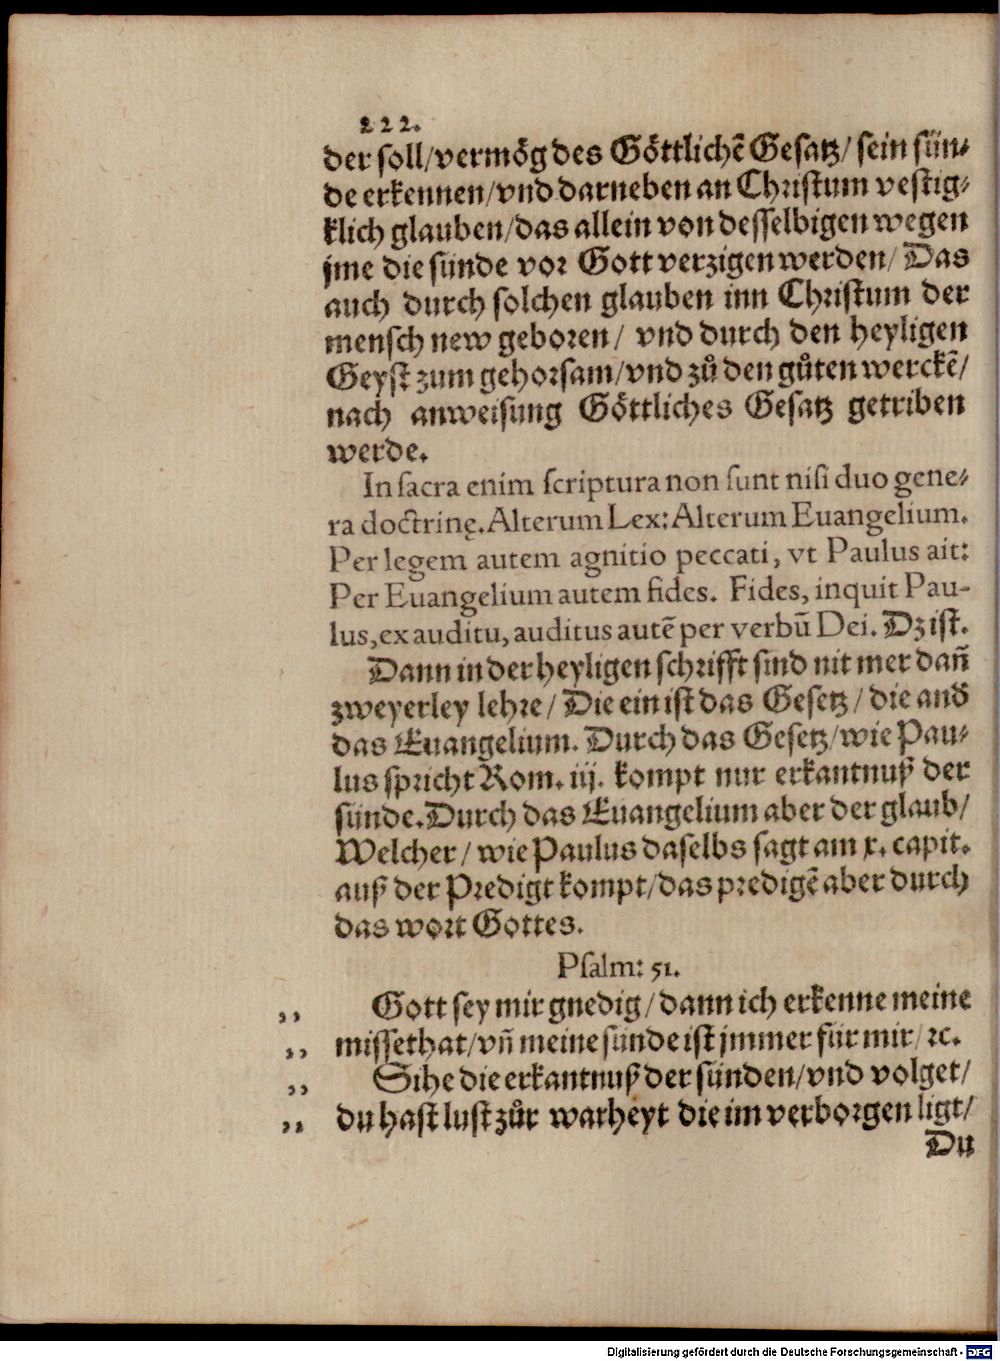 222.
der soll/vermög des Göttlichẽ Gesatz/ sein sün⸗
de erkennen/vnd darneben an Christum vestig⸗
klich glauben/das allein von desselbigen wegen
jme die sünde vor Gott verzigen werden/ Das
auch durch solchen glauben inn Christum der
mensch new geboren/ vnd durch den heyligen
Geyst zum gehorsam/vnd zů den gůten werckẽ/
nach anweisung Göttliches Gesatz getriben
werde.
In sacra enim scriptura non sunt nisi duo gene⸗
ra doctrinę. Alterum Lex: Alterum Euangelium.
Per legem autem agnitio peccati, vt Paulus ait:
Per Euangelium autem fides. Fides, inquit Pau-
lus, ex auditu, auditus autẽ per verbũ Dei. Dz ist.
Dann in der heyligen schrifft sind nit mer dañ
zweyerley lehre/ Die ein ist das Gesetz/ die and̃
das Euangelium. Durch das Gesetz/wie Pau⸗
lus spricht Rom. iij. kompt nur erkantnuß der
sünde. Durch das Euangelium aber der glaub/
Welcher/ wie Paulus daselbs sagt am x. capit.
auß der Predigt kompt/das predigẽ aber durch
das wort Gottes.
Psalm: 51.
,, Gott sey mir gnedig/dann ich erkenne meine
,, missethat/vñ meine sünde ist jmmer für mir/ ꝛc.
,, Sihe die erkantnuß der sünden/vnd volget/
,, du hast lust zůr warheyt die im verborgen ligt/
Du
Digitalisierung gefördert durch die Deutsche Forschungsgemeinschaft - DFG